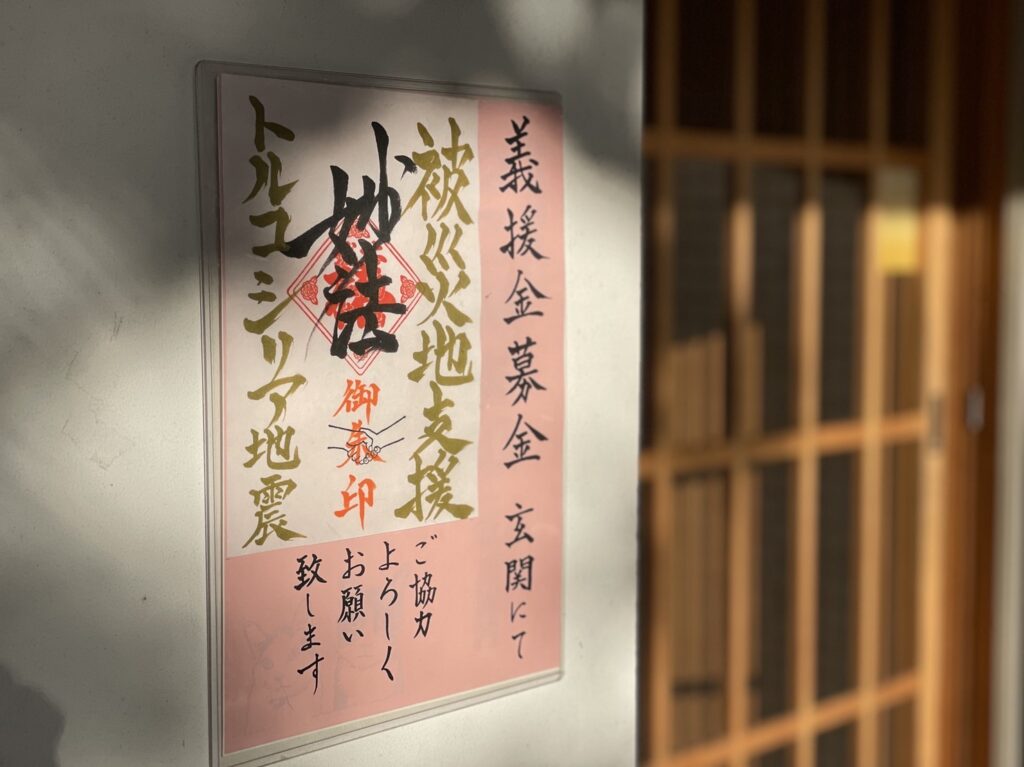 義援金募金 玄関にて
被災地支援
妙法
御義印
トルコシリア地震
ご協力
よろしく
お願い
致します